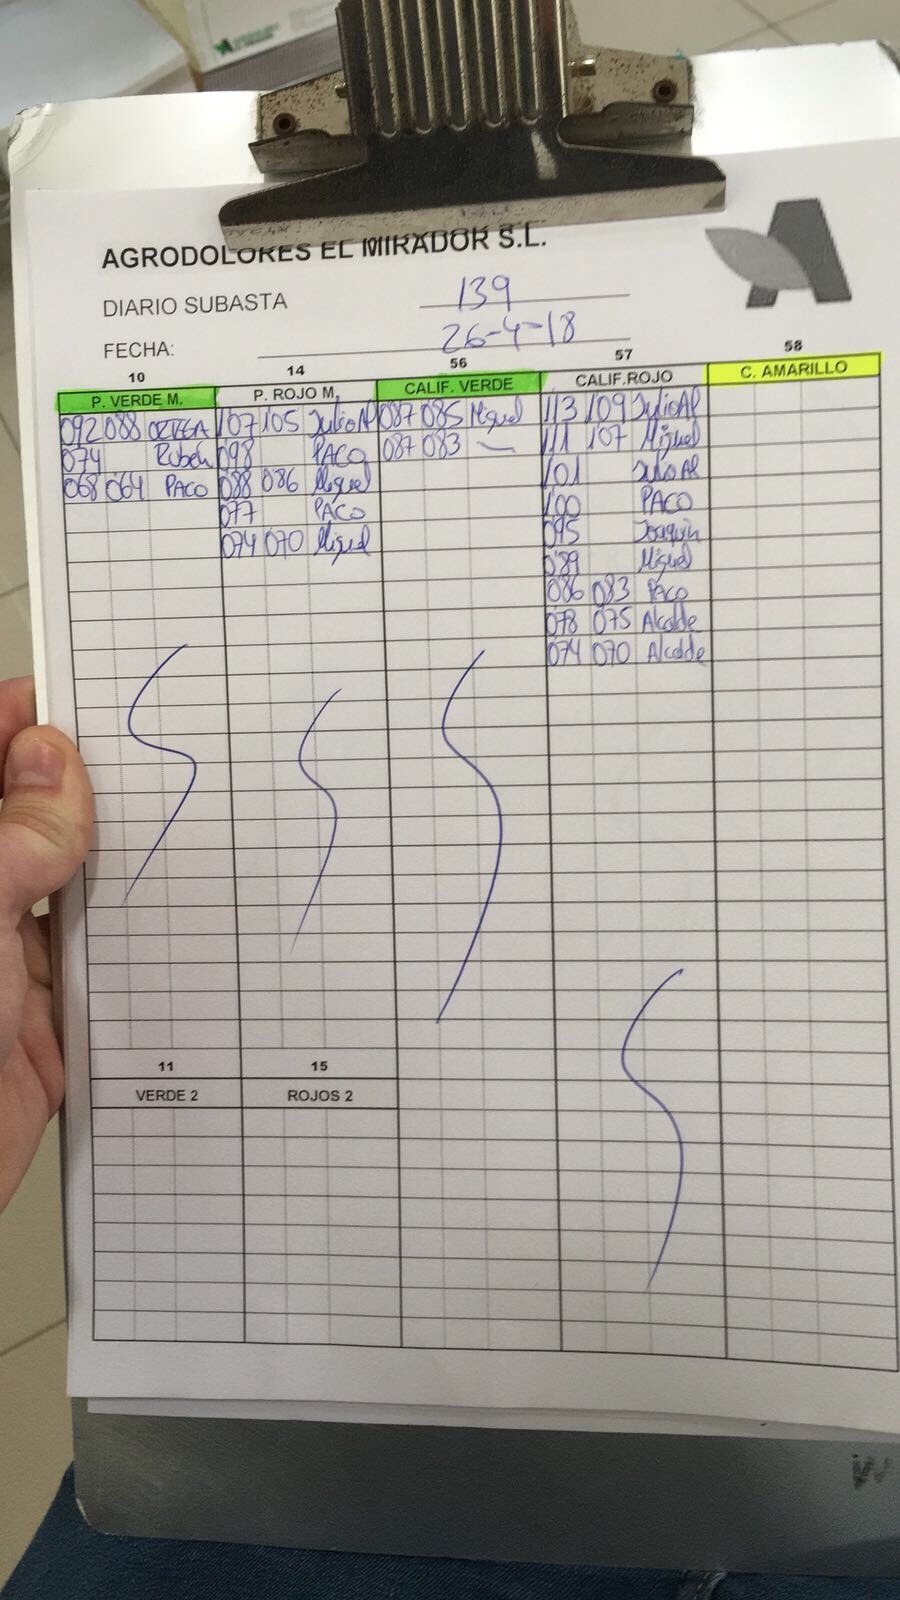 AGRODOLORES EL MIRADOR S.L.
DIARIO SUBASTA 139
FECHA: 26-4-18
10 14 56 57 58
P. VERDE M. P. ROJO M. CALIF. VERDE CALIF.ROJO C. AMARILLO
092 088 ORTEGA 107 105 Julio Al 087 085 Miguel 113 109 Julio Al
074 Rubén 098 PACO 087 083 — 111 107 Miguel
068 064 PACO 088 086 Miguel 101 Julio Al
077 PACO 100 PACO
074 070 Miguel 095 Joaquin
089 Miguel
086 083 PACO
078 075 Alcalde
074 070 Alcalde
11 15
VERDE 2 ROJOS 2